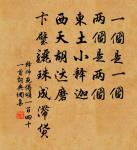 一個是一個
兩個是兩個
東土小釋迦
西天胡達磨
卞璧珠成滯貨
釋師范偈頌一百四十
一首詞典圖集